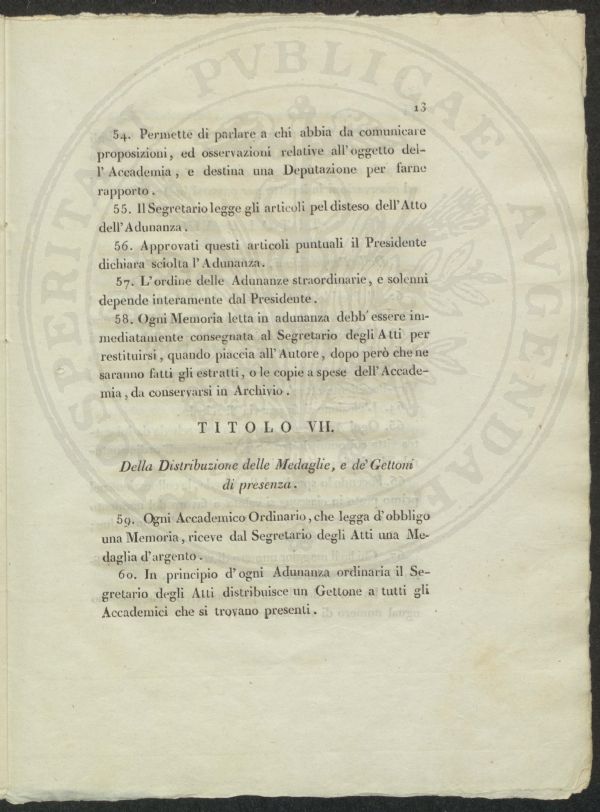 PVBLICAE
PROSPERITATI
AVGENDAE
13
54. Permette di parlare a chi abbia da comunicare
proposizioni, ed osservazioni relative all'oggetto del-
l'Accademia, e destina una Deputazione per farne
rapporto.
55. Il Segretario legge gli articoli pel disteso dell'Atto
dell'Adunanza.
56. Approvati questi articoli puntuali il Presidente
dichiara sciolta l'Adunanza.
57. L'ordine delle Adunanze straordinarie, e solenni
depende interamente dal Presidente.
58. Ogni Memoria letta in adunanza debb'essere im-
mediatamente consegnata al Segretario degli Atti per
restituirsi, quando piaccia all'Autore, dopo però che ne
saranno fatti gli estratti, o le copie a spese dell'Accade-
mia, da conservarsi in Archivio.
TITOLO VII.
Della Distribuzione delle Medaglie, e de' Gettoni
di presenza.
59. Ogni Accademico Ordinario, che legga d'obbligo
una Memoria, riceve dal Segretario degli Atti una Me-
daglia d'argento.
60. In principio d'ogni Adunanza ordinaria il Se-
gretario degli Atti distribuisce un Gettone a tutti gli
Accademici che si trovano presenti.